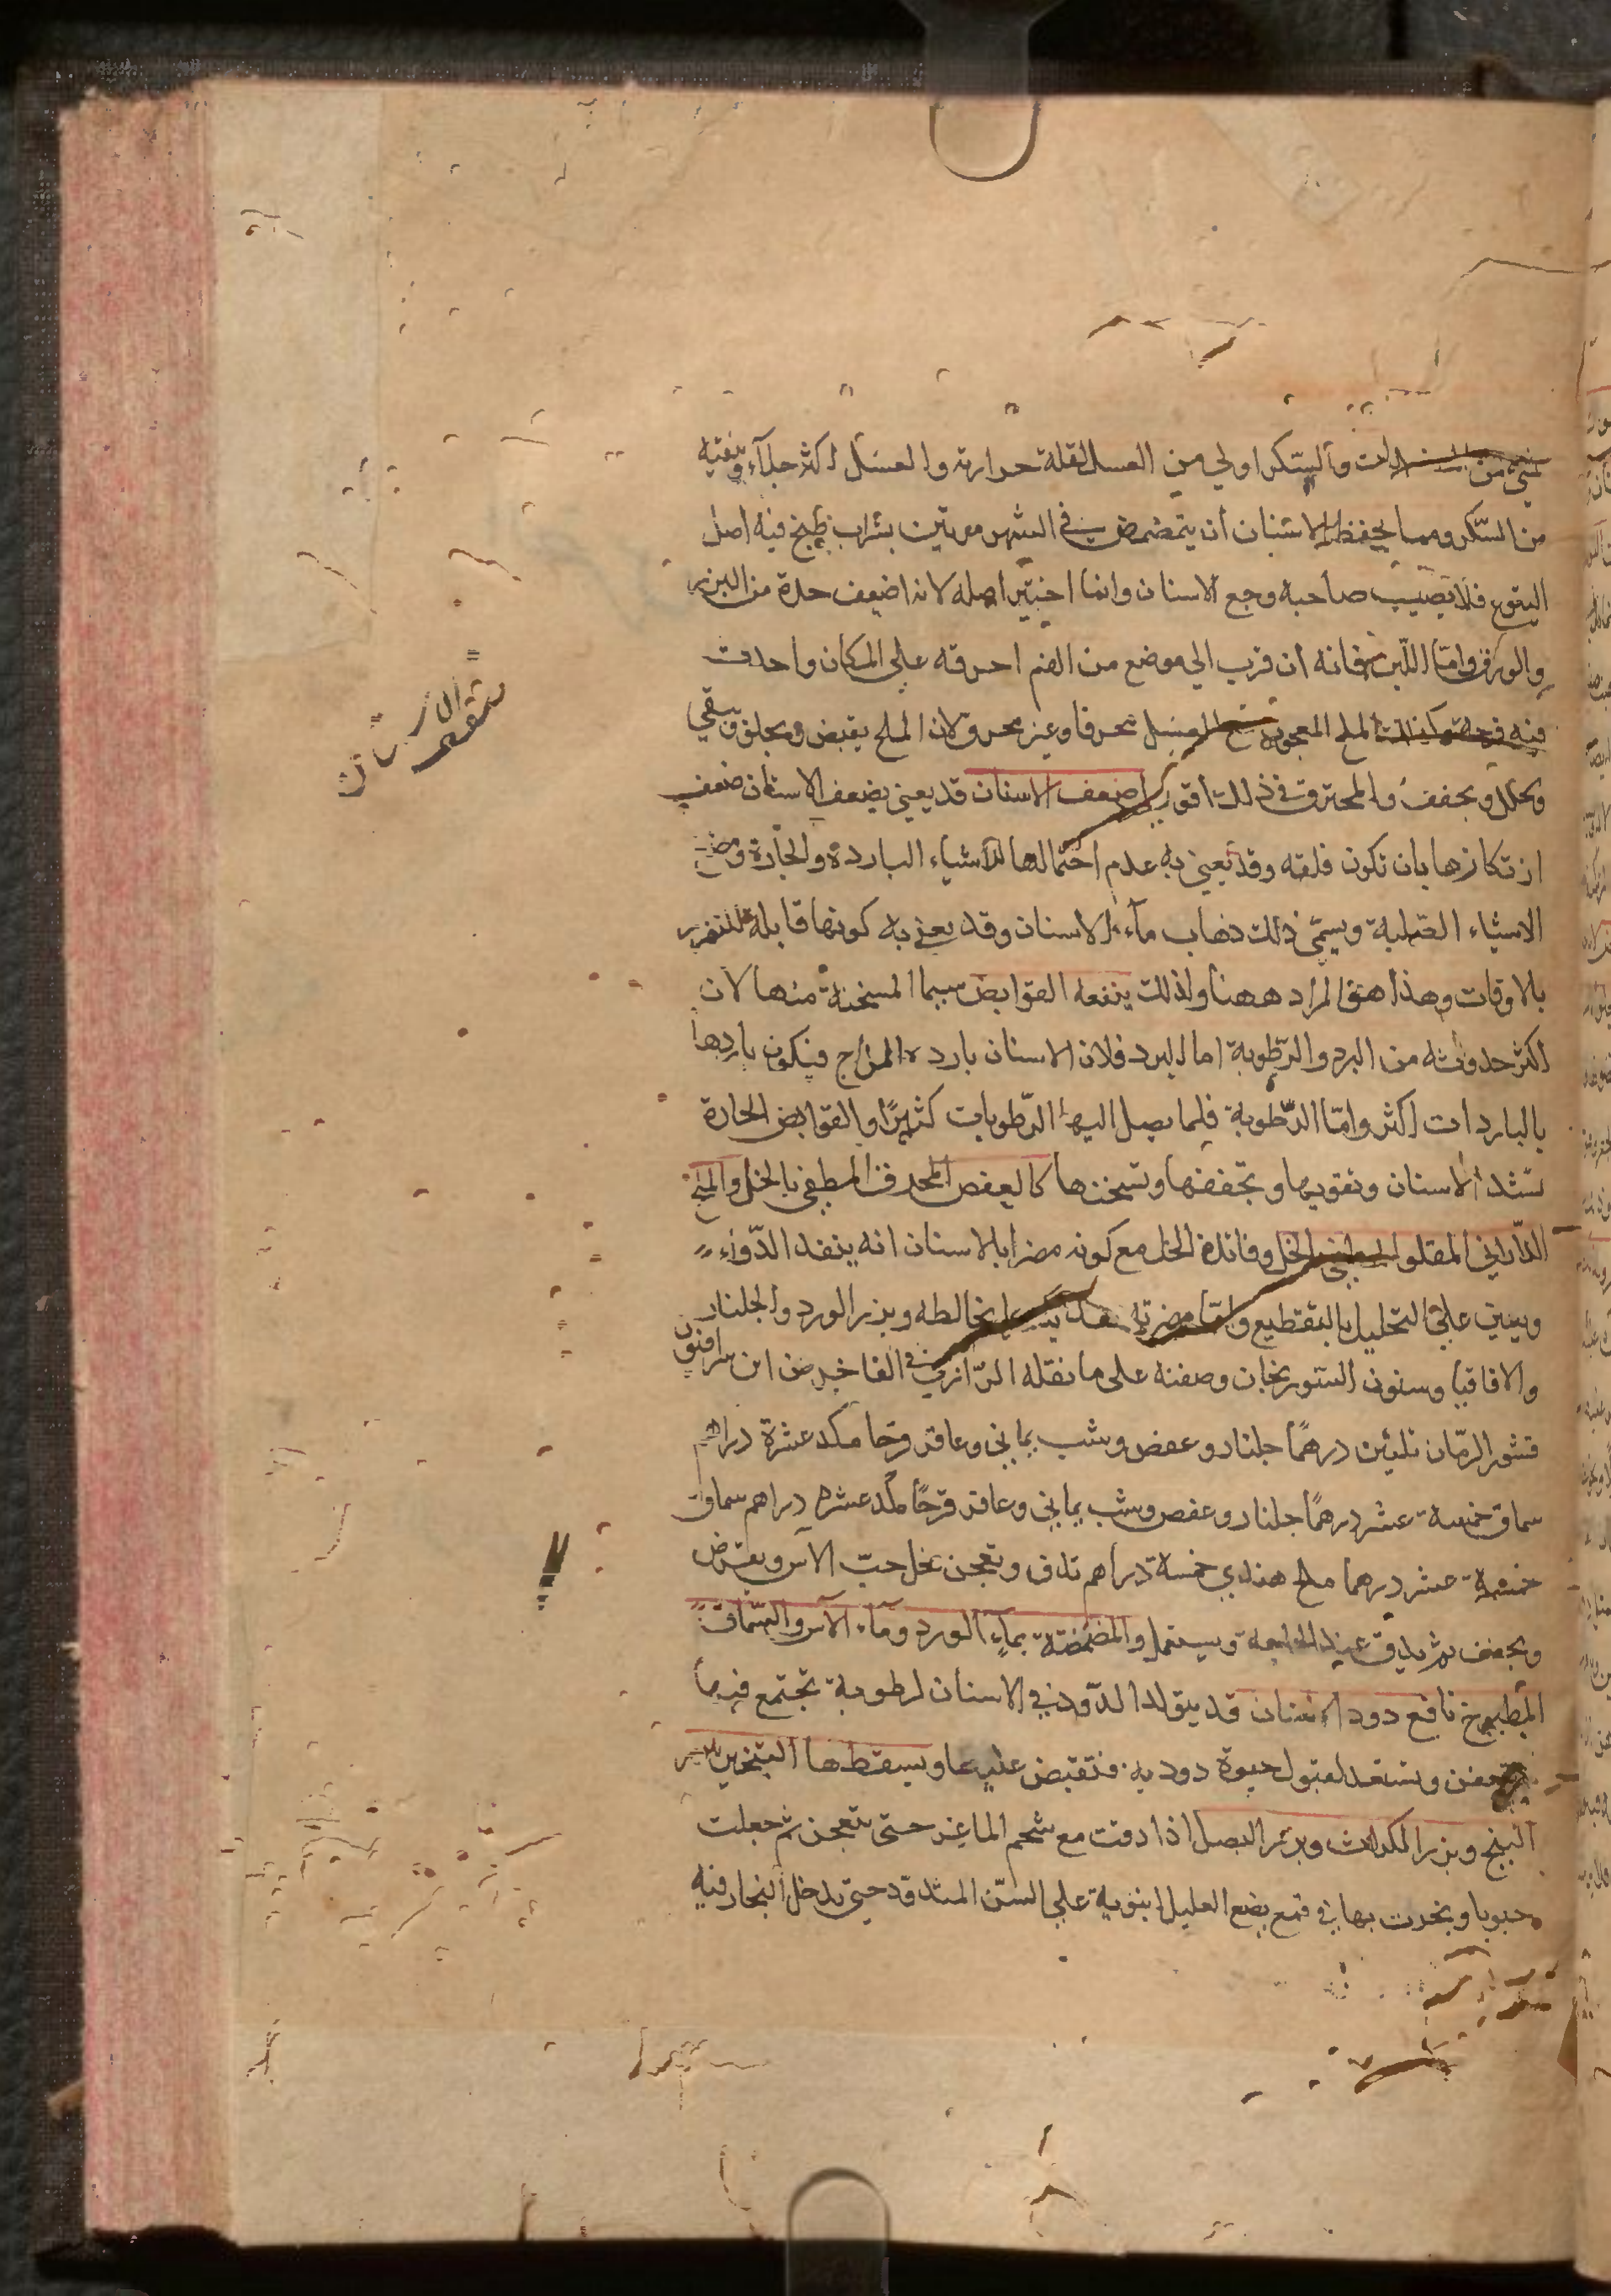 شيء من ذلك والسكر اولى من العسل لقلة حرارته والعسل اكثر جلآء وتنقية
من السّكر ومما يحفظ الاسنان أن يتمضمض في الشهر مرتين بشراب طبخ فيه اصل
اليتوع فلا يصيب صاحبه وجع الاسنان وانما اختير اصله لانه اضعف حدة من البزر
والورق وامّا اللّبن فانه ان قرب الى موضع من الفم احرقه على المكان واحدث
فيه قرحة وكذلك الملح المعجون مع العسل محرقا وغير محرق لان الملح يقبض ويجلو وينقي
ويحلل ويجفف والمحترق في ذلك اقوى ضعف الاسنان قد يعنى بضعف الاسنان ضعف
ارتكازها بان تكون قلقه وقد يعنى به عدم احتمالها للاشياء الباردة والحارة ومضغ
الاشياء الصّلبة ويسمّى ذلك ذهاب مآء الاسنان وقد يعنى به كونها قابلة للتضرر
بالاوقات وهذا هو المراد ههنا ولذلك ينفعه القوابض سيما المسخنة منها لان
اكثر حدوثه من البرد والرّطوبة اما البرد فلان الاسنان باردة المزاج فيكون باردها
بالباردات اكثر وامّا الرّطوبة فلما يصل اليها الرّطوبات كثيرًا والقوابض الحارة
تشد الاسنان وتقويها وتجففها وتسخنها كالعفص المحرق المطفى بالخل والملح
الدّاراني المقلو المطفى بالخل وفائدة الخل مع كونه مضرا بالاسنان انه ينفد الدّواء
ويعين على التحليل بالتقطيع وامّا مضرته فقد بما يخالطه وبزر الورد والجلنار
والاقاقيا وسنون السّوريجان وصفته على ما نقله الرّازي في الفاخر عن ابن سرافيون
قشور الرمّان ثلثين درهمًا جلنار وعفص وشب يماني وعاقر قرحا مكد عشرة دراهم
سماق خمسة عشر درهمًا جلنار وعفص وشب يماني وعاقر قرحًا مكد عشره دراهم سماق
خمسة عشر درهما ملح هندي خمسة دراهم تدق وتعجن بخل حبّ الآس ويقرض
ويجفف ثم يدق عند الحاجة ويستعمل والمضمضة بمآء الورد ومآء الآس والسّماق
المطبوخ نافع دود الاسنان قد يتولد الدّود في الاسنان لرطوبة تجتمع فيها
وتعفن وتستعد لقبول حيوة دوديه فتقبض عليها ويسقطها التبخير ببزر
البنج وبزر الكراث وبزر البصل اذا دقت مع شحم الماعز حتى تعجن ثم جعلت
حبوبا وبخرت بها في قمع يضع العليل انبوبه على السّن المتدود حتى يدخل البخار فيه